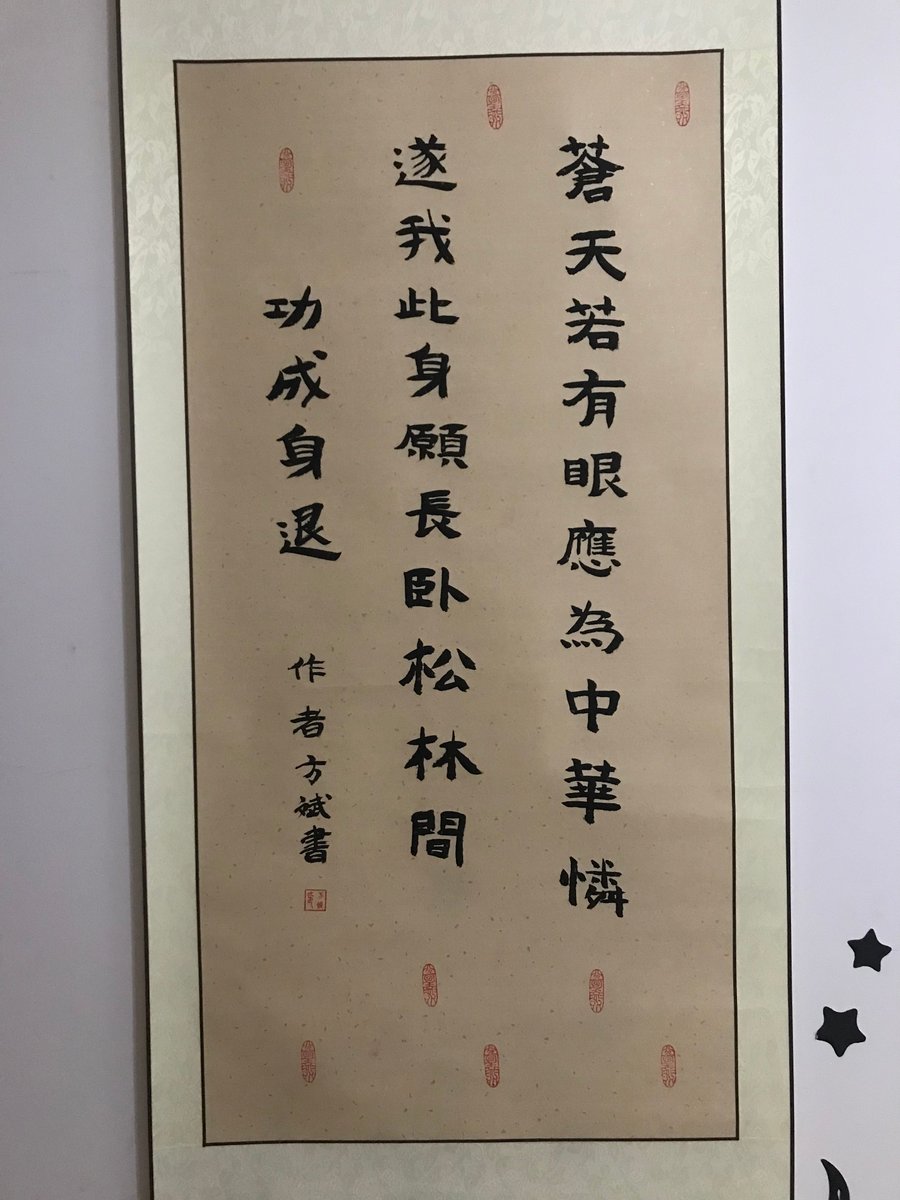 蒼天若有眼應為中華憐
遂我此身願長卧松林間
功成身退
作者方斌書